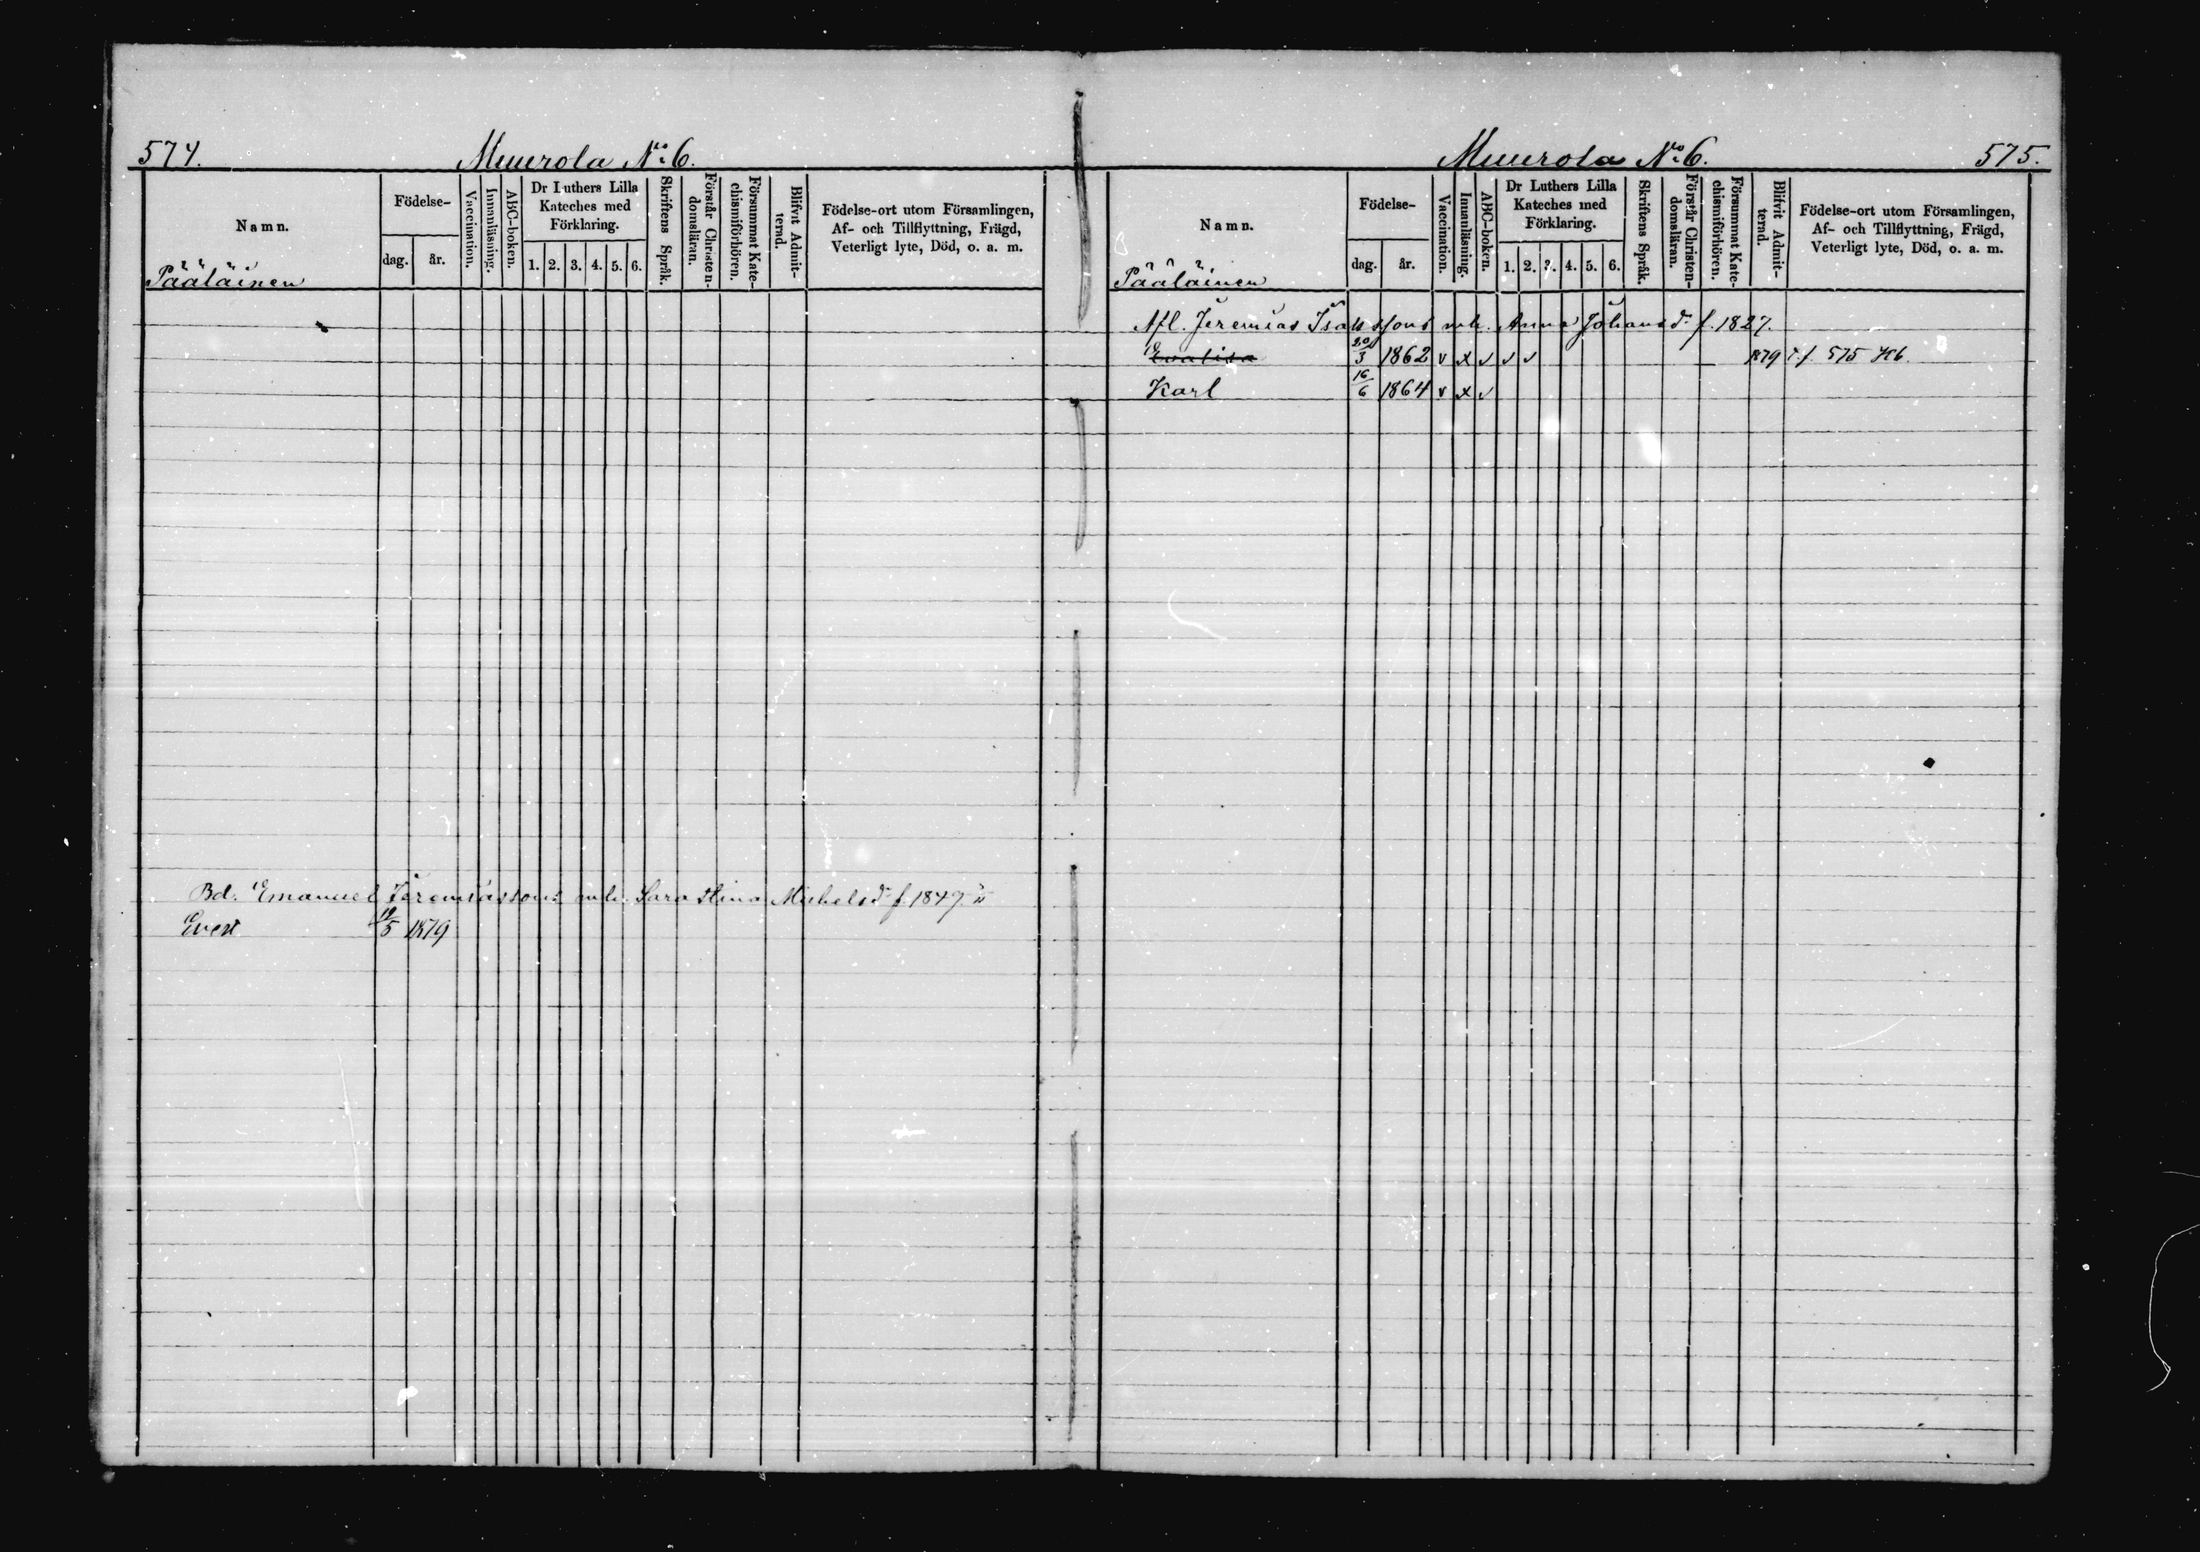 574.
Muurola No 6.
Namn.
Födelse-
dag.
år.
Vaccination.
Innanläsning.
ABC-boken.
Dr Luthers Lilla
Kateches med
Förklaring.
1. 2. 3. 4. 5. 6.
Skriftens Språk.
Förstår Christen-
domsläran.
Försummat Kate-
chismiförhören.
Blifvit Admit-
terad.
Födelse-ort utom Församlingen,
Af- och Tillflyttning, Frägd,
Veterligt lyte, Död, o. a. m.
Pääläinen
Bd. Emanuel Jeremiassons mh. Sara Stina Michelsd. f. 1847
Evert 19/5 1879
Muurola No 6.
575.
Namn.
Födelse-
dag.
år.
Vaccination.
Innanläsning.
ABC-boken.
Dr Luthers Lilla
Kateches med
Förklaring.
1. 2. 3. 4. 5. 6.
Skriftens Språk.
Förstår Christen-
domsläran.
Försummat Kate-
chismiförhören.
Blifvit Admit-
terad.
Födelse-ort utom Församlingen,
Af- och Tillflyttning, Frägd,
Veterligt lyte, Död, o. a. m.
Pääläinen
Afl. Jeremias Isakssons mh. Anna Johansd. f. 1827.
Evalisa 20/3 1862 v x v v v 1879 575 Kb.
Karl 16/6 1864 v x v